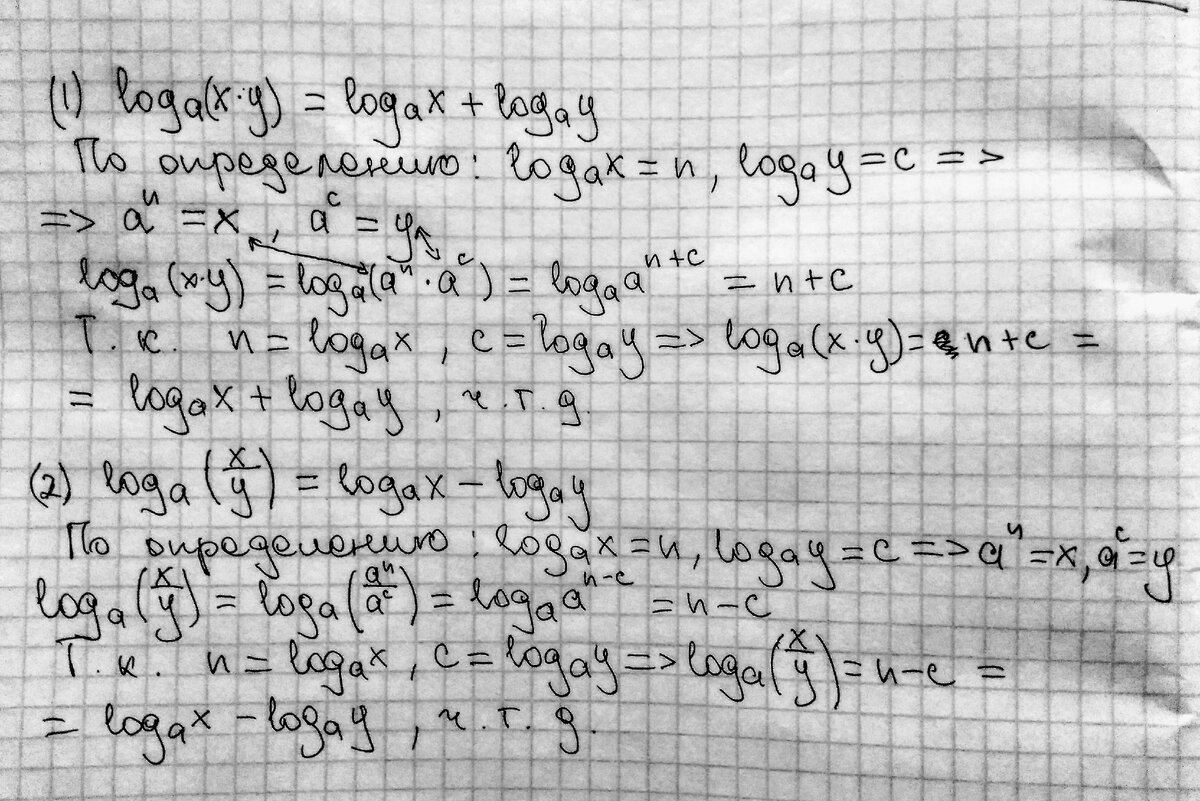 (1) logₐ(x·y) = logₐx + logₐy
По определению: logₐx = n, logₐy = c =>
=> aⁿ = x, aᶜ = y
logₐ(x·y) = logₐ(aⁿ·aᶜ) = logₐaⁿ⁺ᶜ = n+c
Т.к. n = logₐx, c = logₐy => logₐ(x·y) = n+c =
= logₐx + logₐy, ч.т.д.
(2) logₐ(x/y) = logₐx - logₐy
По определению: logₐx = n, logₐy = c => aⁿ = x, aᶜ = y
logₐ(x/y) = logₐ(aⁿ/aᶜ) = logₐaⁿ⁻ᶜ = n-c
Т.к. n = logₐx, c = logₐy => logₐ(x/y) = n-c =
= logₐx - logₐy, ч.т.д.